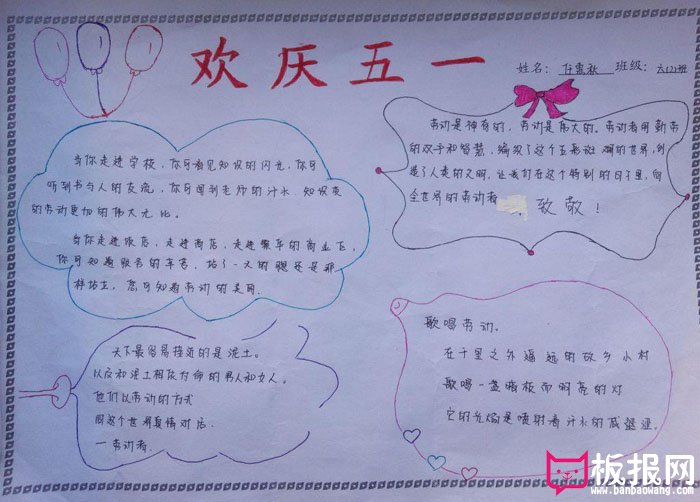 欢庆五一
姓名：任惠秋 班级：六(2)班
当你走进学校，你可看见知识的闪光，你可
听到书与人的交流，你可闻到老师的汗水，知识类
的劳动更加的伟大无比。
当你走进饭店，走进商店，走进繁华的商业区，
你可知道服务的辛苦，站了一天的腿还是那
样站立，您可知道劳动的美丽.
劳动是神奇的，劳动是伟大的。劳动者用勤劳
的双手和智慧，编织了这个五彩斑斓的世界，创
造了人类的文明。让我们在这个特别的日子里，向
全世界的劳动者 致敬！
天下最容易接近的是泥土。
以及和泥土相依为命的男人和女人。
他们以劳动的方式
同这个世界真情对话.
一劳动者.
歌唱劳动。
在千里之外遥远的故乡小村
歌唱一盏瘦枝而明亮的灯
它的光焰是喷射着汗水的
板报网
www.banbaowang.com